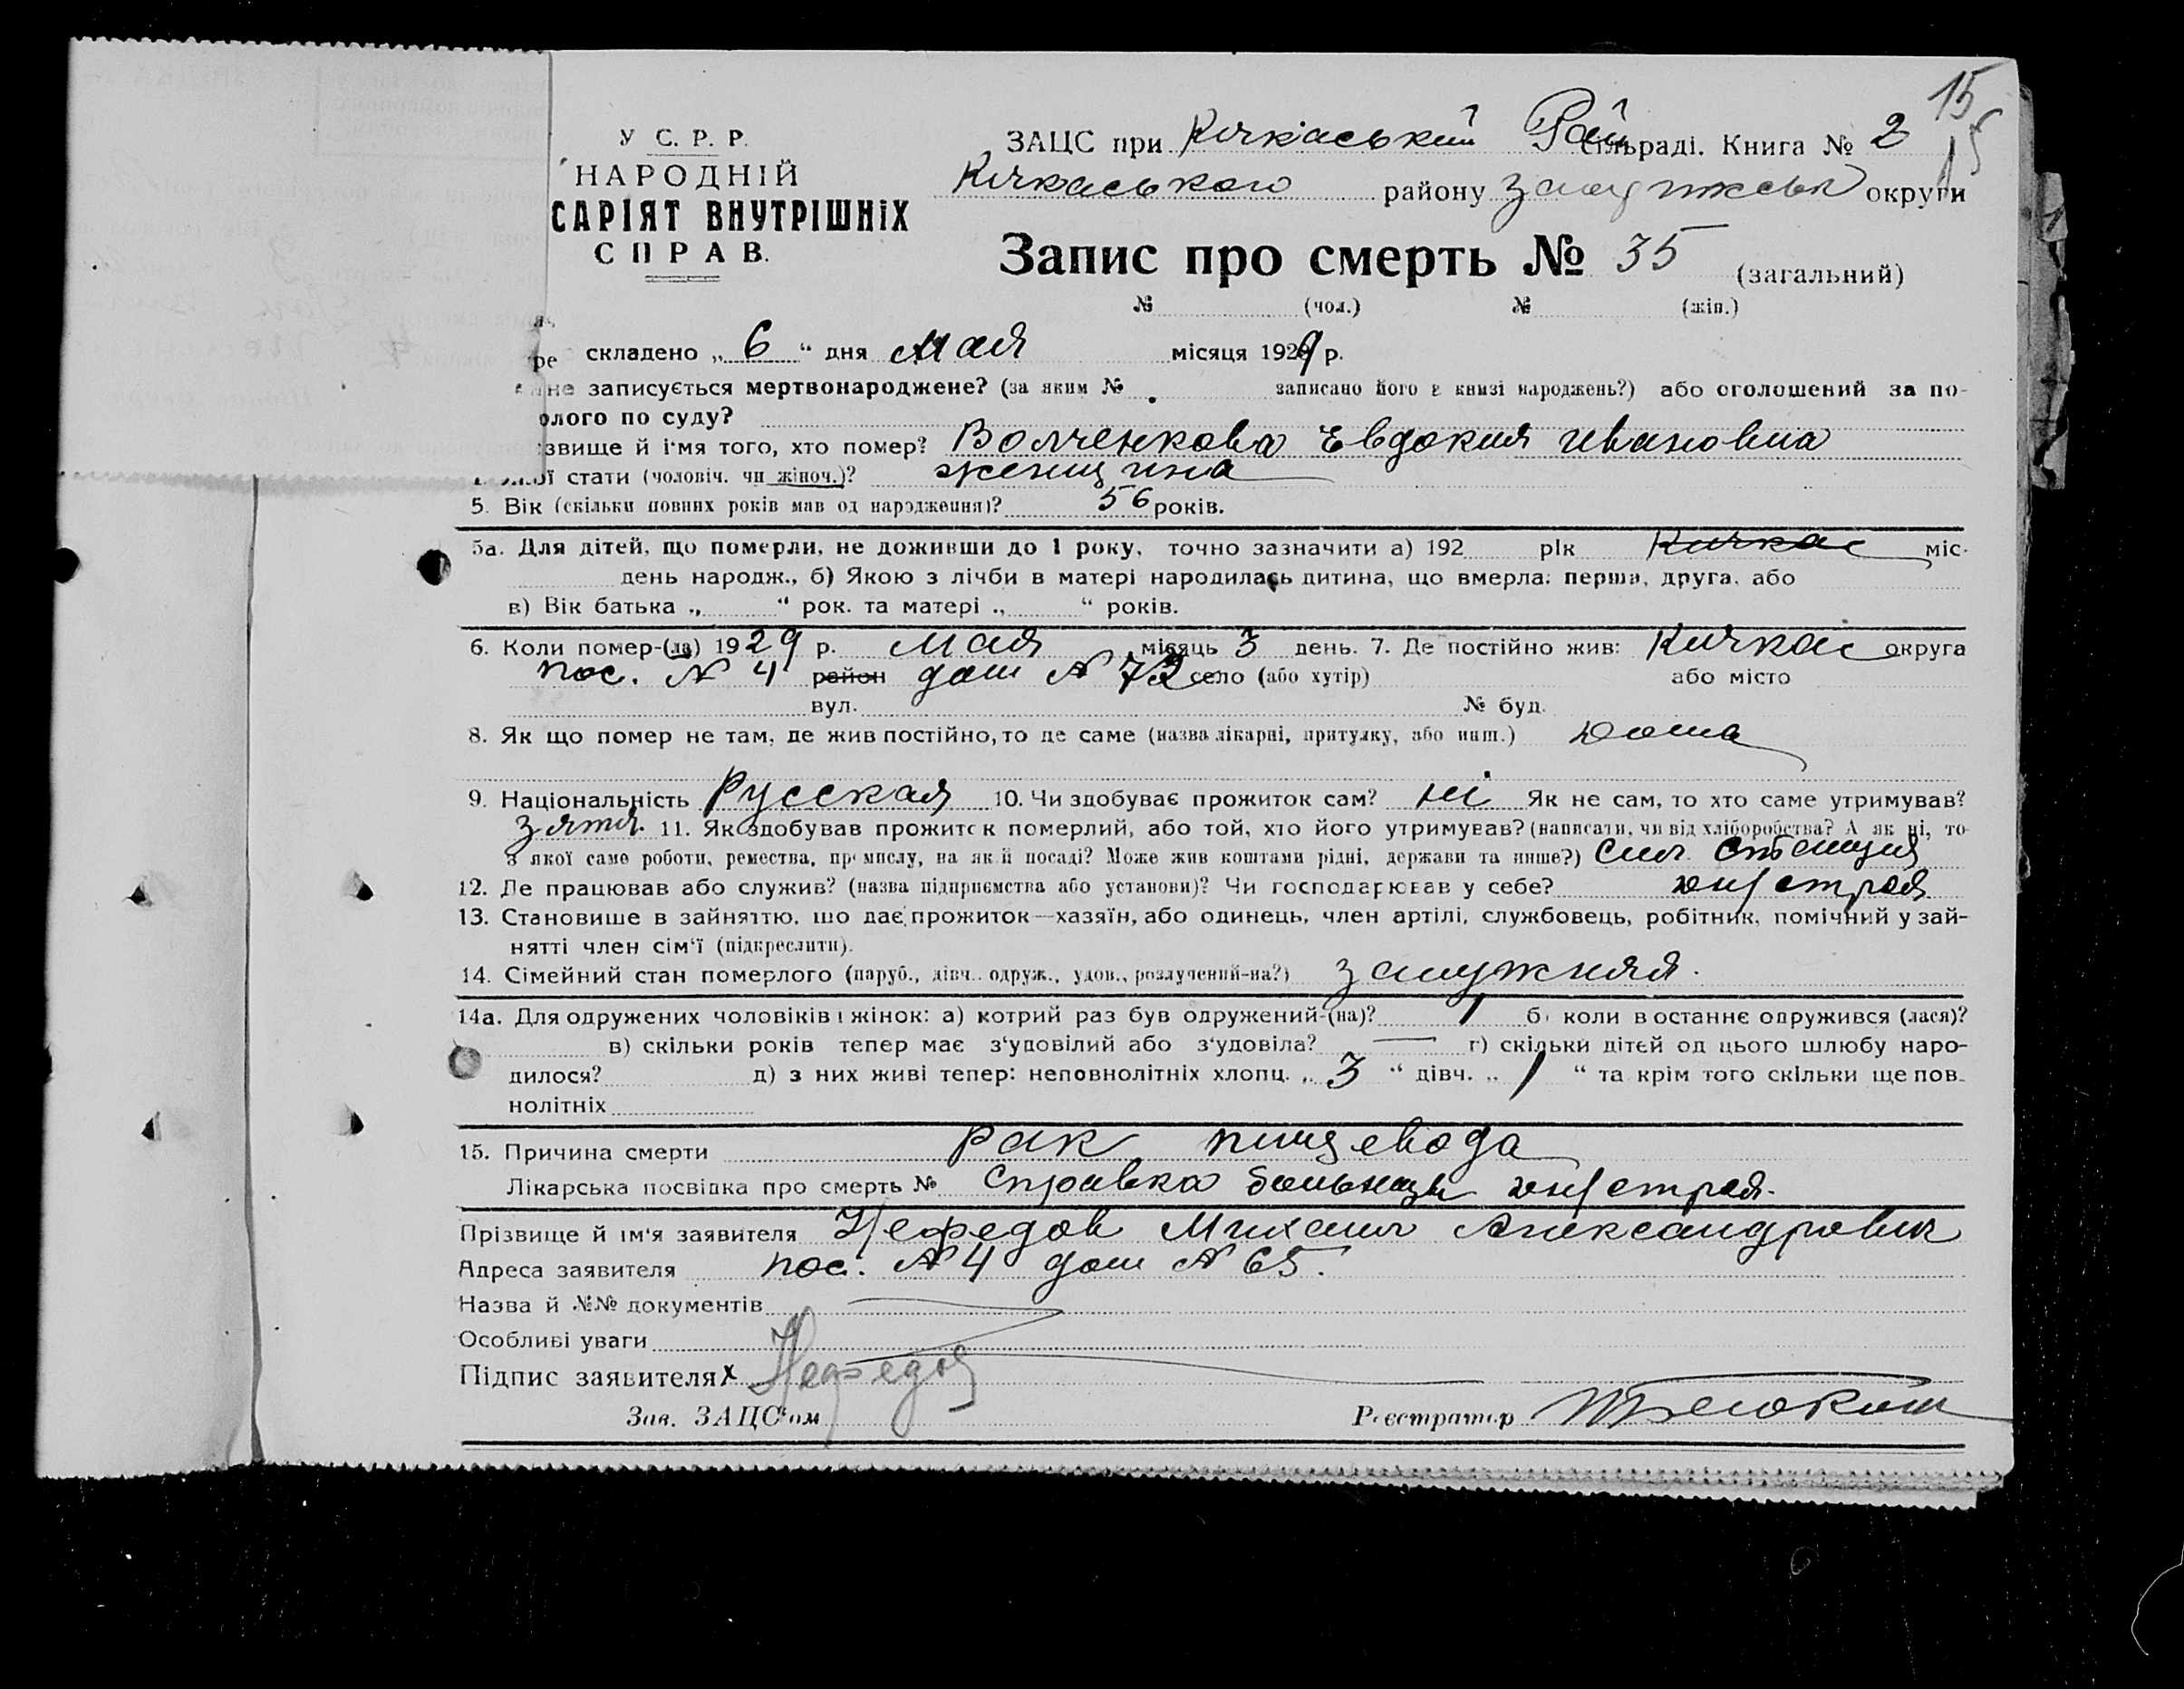 15
У С. Р. Р.
НАРОДНІЙ
САРІЯТ ВНУТРІШНІХ
СПРАВ.
ЗАЦС при Кічкаський Рай сільраді. Книга № 2
Кічкаського району округи
Запис про смерть № 35 (загальний)
№ (чол.) № (жін.)
складено „ 6 “ дня Мая місяця 1929 р.
не записується мертвонароджене? (за яким № записано його в книзі народжень?) або оголошений за по-
лого по суду?
звище й ім'я того, хто помер? Волченкова Евдокия Ивановна
ої стати (чоловіч. чи жіноч.)? женщина
5. Вік (скільки повних років мав од народження)? 56 років.
5а. Для дітей, що померли, не доживши до 1 року, точно зазначити а) 192 рік Кичкас міс.
день народж., б) Якою з лічби в матері народилась дитина, що вмерла: перша, друга, або
в) Вік батька „ “ рок. та матері „ “ років.
6. Коли помер-(ла) 1929 р. Мая місяць 3 день. 7. Де постійно жив: Кичкас округа
пос. № 4 район дом № 72 село (або хутір) або місто
вул. № буд.
8. Як що помер не там, де жив постійно, то де саме (назва лікарні, притулку, або инш.) Дома
9. Національність Русская 10. Чи здобував прожиток сам? ні Як не сам, то хто саме утримував?
Зятя. 11. Як здобував прожиток померлий, або той, хто його утримував? (написати, чи від хліборобства? А як ні, то
з якої саме роботи, ремества, промислу, на якій посаді? Може жив коштами рідні, держави та инше?)
12. Де працював або служив? (назва підприємства або установи)? Чи господарював у себе? Днſстроя
13. Становище в зайняттю, що дає прожиток—хазяїн, або одинець, член артілі, службовець, робітник, помічний у зай-
нятті член сім'ї (підкреслити).
14. Сімейний стан померлого (паруб., дівч., одруж., удов., розлучений-на?) замужняя.
14а. Для одружених чоловіків і жінок: а) котрий раз був одружений-(на)? 1 б) коли в останнє одружився (лася)?
в) скільки років тепер має з'удовілий або з'удовіла? — г) скільки дітей од цього шлюбу наро-
дилося? д) з них живі тепер: неповнолітніх хлопц. „ 3 “ дівч. „ 1 “ та крім того скільки ще пов-
нолітніх
15. Причина смерти рак пищевода
Лікарська посвідка про смерть № Справка больницы Днſстроя.
Прізвище й ім'я заявителя Нефедов Михаил Александрович
Адреса заявителя пос. № 4 дом № 65.
Назва й №№ документів
Особливі уваги
Підпис заявителя х Нефедов
Зав. ЗАЦС'ом Реєстратор